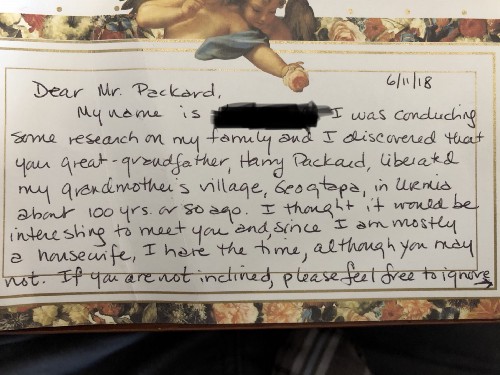 6/11/18
Dear Mr. Packard,
My name is I was conducting
some research on my family and I discovered that
your great-grandfather, Harry Packard, liberated
my grandmother's village, Geogtapa, in Urmia
about 100 yrs. or so ago. I thought it would be
interesting to meet you and, since I am mostly
a housewife, I have the time, although you may
not. If you are not inclined, please feel free to ignore →